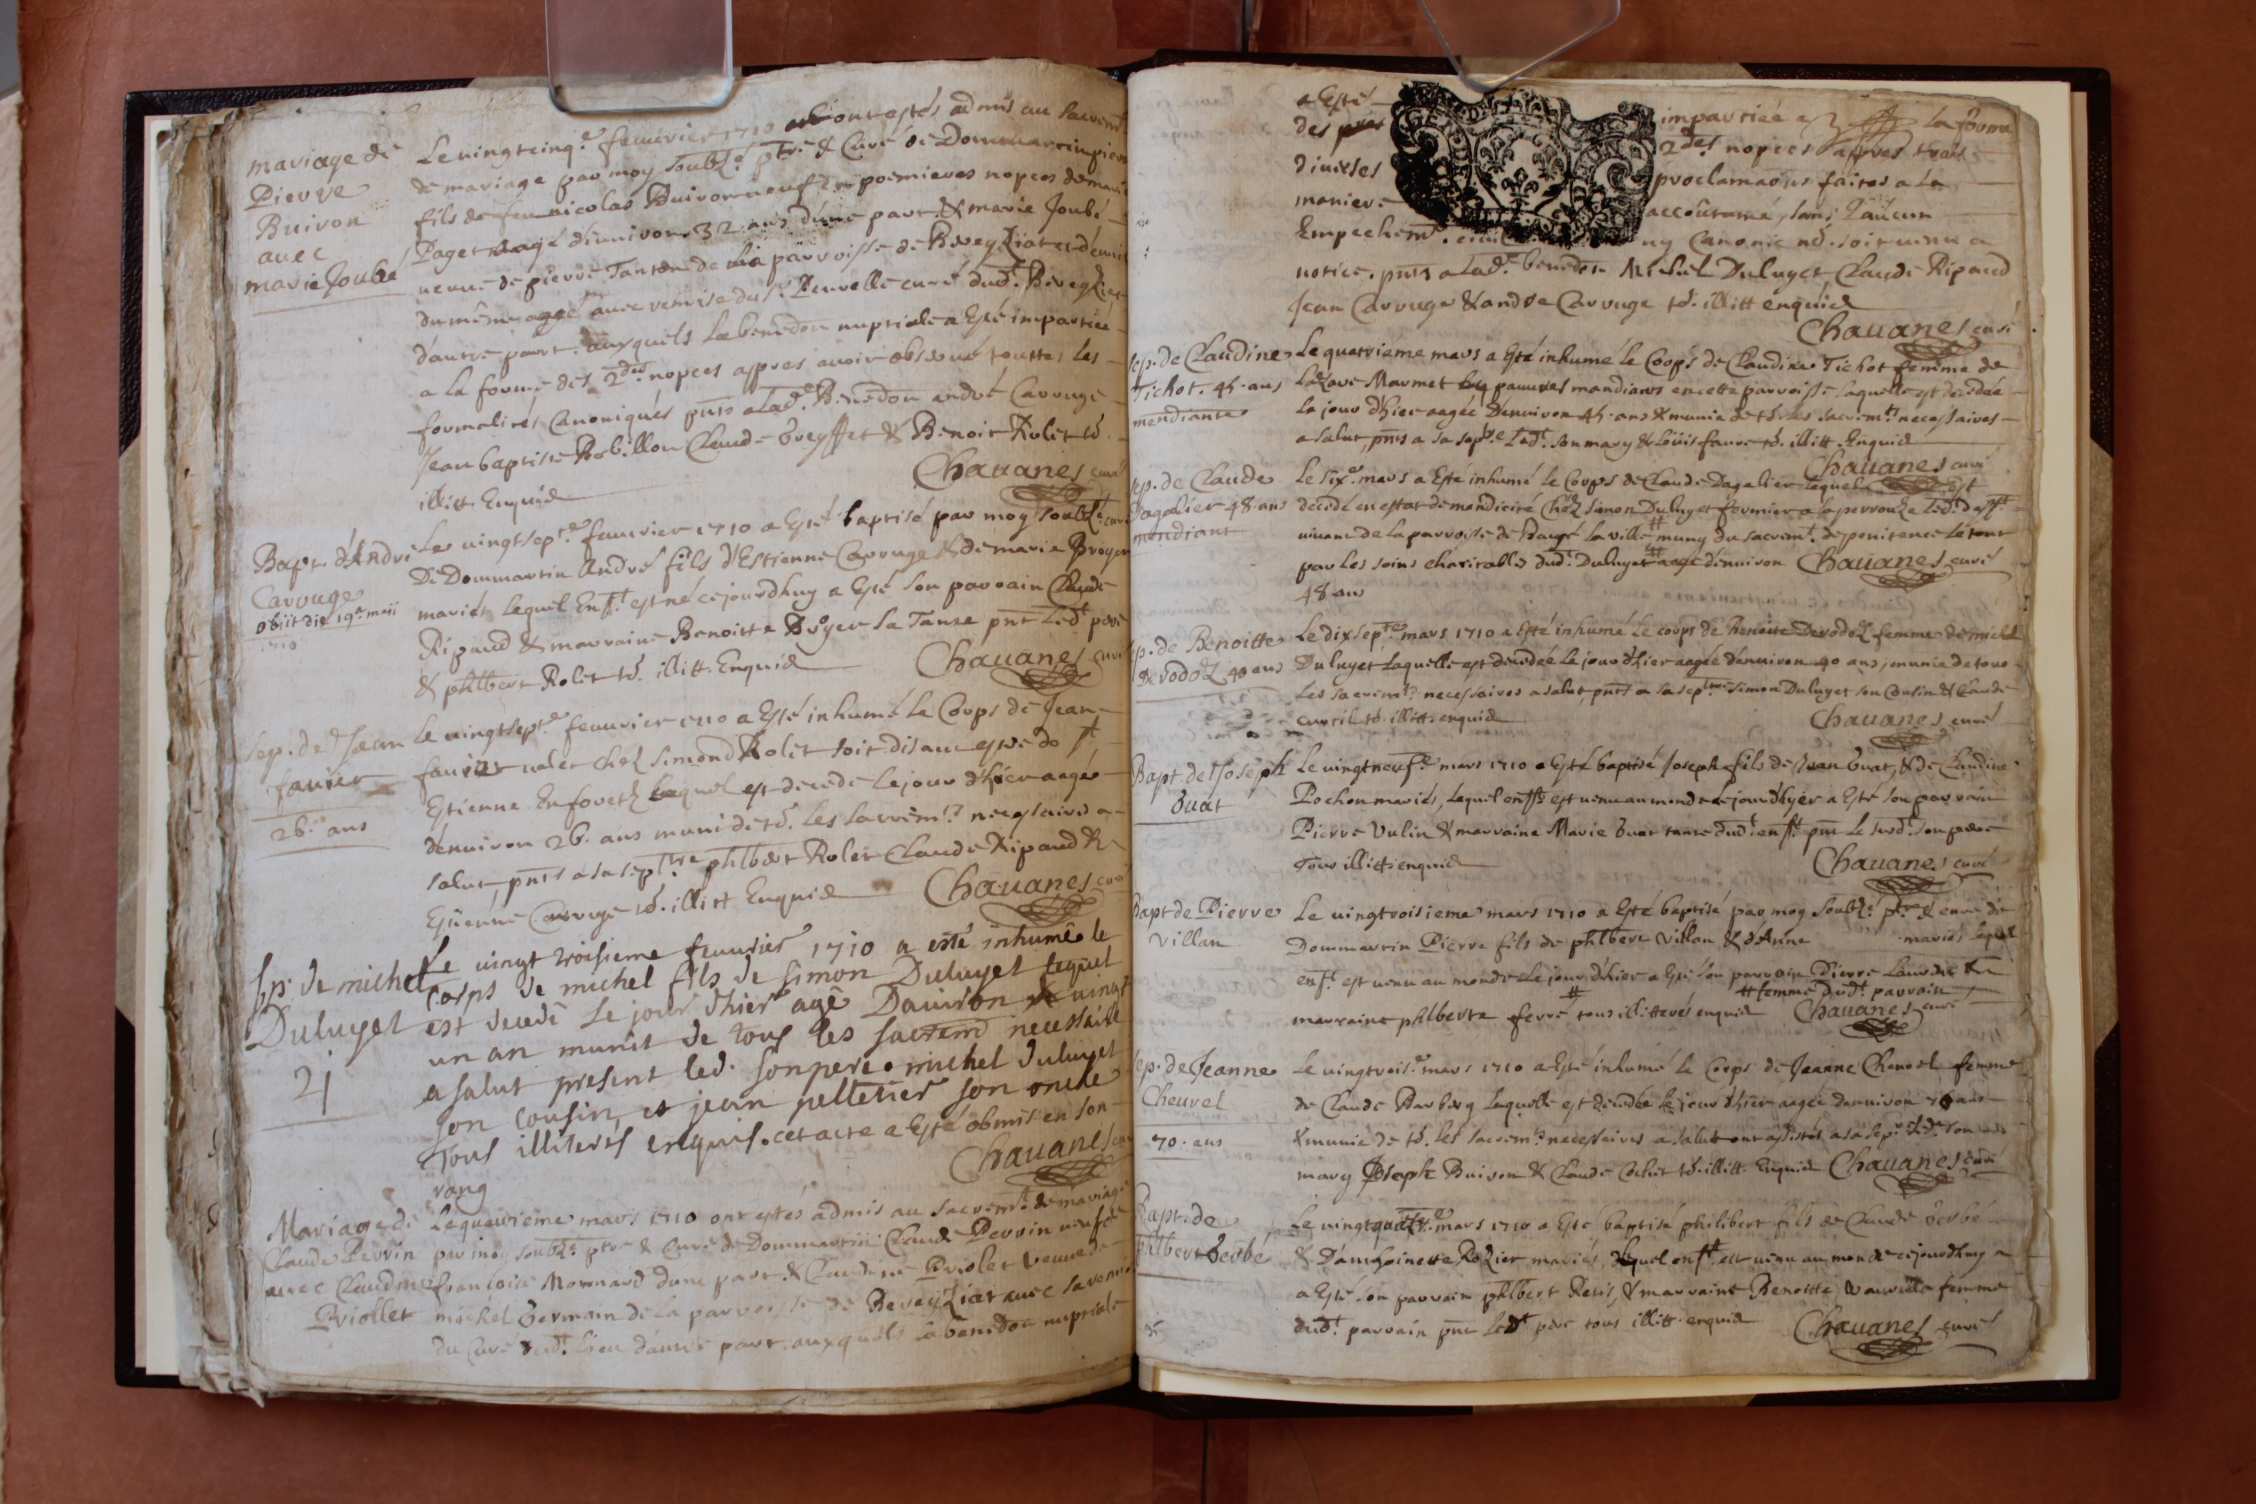 mariage de
Pierre
Buiron
avec
marie Joubé
Le vingtcinq.e feuurier 1710 ont estés admis au sacrem.t
de mariage par moy soubz.é ptre & Curé de Dommartin pierre
fils de feu nicolas Buiron neuf en premieres nopces de marie
Paget aagé denuiron 32. ans dune part & marie Joubé
ueuue de pierre Tanton de la parroisse de Beveyziat et denui
du même aage auec remise du s.r Peuvelle curé dud.t Beveyziat
dautre part. auxquels la benedon nuptiale a Esté impartiée
a la forme des 2.des nopces appres auoir obserué touttes les
formalités Canoniques pnts a lad.e Benedon andré Carruge
Jean baptiste Robillon Claude Greyffet & Benoit Rolet td.
illitt. Enquid
Chauanes curé
Bapt. d'André
Carruge
obiit die 19.a maii
1710
Le vingtsept.e feuurier 1710 a Esté baptisé par moy soubz.é curé
De Dommartin André fils d'Estienne Carruge & de marie Broyer
mariés, lequel Enf.t est né cejourdhuy a Esté son parrain Claude
Ripaud & marraine Benoitte Broyer sa Tante pnt Led.t pere
& philbert Rolet td. illitt. Enquid
Chauanes curé
Sep. de Jean
fauier
26. ans
Le vingtsept.e feuurier 1710 a Esté inhumé le Corps de Jean
fauier ualet chez Simond Rolet soit disant estre de S.t
Etienne En foretz lequel est decede le jour d'hier aagé
denuiron 26. ans muni de td. les sacrem.ts necessaires a
salut, pnts a sa sept.re philbert Rolet Claude Ripaud &
Etienne Carruge td. illitt Enquid
Chauanes curé
Sp. de michel
Duluyet
Le vingt troisieme feuurier 1710 a esté inhumé le
corps de michel fils de simon Duluyet lequel
est decedé le jour dhier agé Dauiron vingt
un an munit de tous les sacrem necessaire
a salut present led. son pere michel duluyet
son cousin, et jean pelletier son oncle
Tous illiterés enquis. cet acte a Esté obmis en son
rang
Chauanes curé
Mariage de
Claude Perrin
avec Claudine
Priollet
Le quatrième mars 1710 ont estés admis au sacrem.t de mariage
par moy soubz.é ptre & Curé de Dommartin Claude Perrin ueuf de
francoise Monnard dune part & Claudine Priolet veuue de
michel Germain de la parroisse de Beveyziat auec la remise
du Curé dud.t lieu dautre part. auxquels la benedon nuptiale
a Esté impartiée a la forme
des 2.des nopces appres trois
diuerses proclamaons faites a la
maniere accoûtumé, sans qaucun
Empechem.t ny Canonic nd. soit uenu a
notice. pnts a lad.e benedon Michel Duluyet Claude Ripaud
Jean Carruge & andre Carruge td. illitt enquid
Chauanes curé
sep. de Claudine
Tichot. 45. ans
mendiante
Le quatriéme mars a Esté inhumé le Corps de Claudine Tichot femme de
Lazare Marmet pauures mandians en cette parroisse laquelle est decedée
le jour d'hier aagée d'enuiron 45. ans & munie de td. les sacrem.ts necessaires
a salut, pnts a sa sep.re Led.t son mary & Loüis faure td. illitt. Enquid
Chauanes curé
sep. de Claude
Dagalier 48. ans
mendiant
Le six.e mars a Esté inhumé le Corps de Claude Dagalier lequel est
decedé en estat de mendicité Chez Simon Duluyet fermier a la perrouze
uiuant de la parroisse de Baugé la ville # muny du sacrem.t de penitence le tout
par les soins charitables dud.t Duluyet # aagé denuiron
48 ans
Chauanes curé
sep. de Benoitte
Devodoz 40 ans
Le dixsept.e mars 1710 a Esté inhumé le corps de Benoite Devodoz femme de michel
Duluyet laquelle est decedée le jour d'hier aagée denuiron 40 ans, munie de tous
les sacrem.ts necessaires a salut, pnts a sa sept.re Simon Duluyet son Cousin & Claude
Curtil td. illitt. enquid
Chauanes curé
Bapt. de Joseph
Buat
Le vingtneuf.e mars 1710 a Esté baptisé Joseph fils de Jean Buat, & de Claudine
Pochon mariés, lequel enf.t est uenu au monde le jour d'hyer a Esté son parrain
Pierre Vulin & marraine Marie Buat tante dud.t enf.t pnt le susd.t son pere
Tous illitt enquid
Chauanes curé
Bapt de Pierre
Villan
Le vingtroisieme mars 1710 a Esté baptisé par moy soubz.é ptre & curé de
Dommartin Pierre fils de philbert Villan & d'Anne mariés lequel
enf.t est uenu au monde le jour d'hier a Esté son parrain Pierre
# femme dud.t parrain
marraine philberte ferre # tous illitterés enquid
Chauanes curé
sep. de Jeanne
Cheurel
70. ans
Le vingtrois.e mars 1710 a Esté inhumé le Corps de Jeanne Cheurel femme
de Claude Barberg laquelle est decedée le jour d'hier aagée denuiron 70 ans
& munie de td. les sacrem.ts necessaires a salut ont assistés a sa sep.re led.t son
mary Joseph Buiron & Claude Colut td. illitt. Enquid
Chauanes curé
Bapt. de
philbert Gerbé
Le vingtquatr.e mars 1710 a Esté baptisé philibert fils de Claude Gerbé
& D'anthoinette Rozier mariés, lequel enf.t est uenu au monde cejourdhuy a
a Esté son parrain philbert Retis, & marraine Benoitte femme
dud.t parrain pnt led.t pere tous illitt. enquid
Chauanes curé